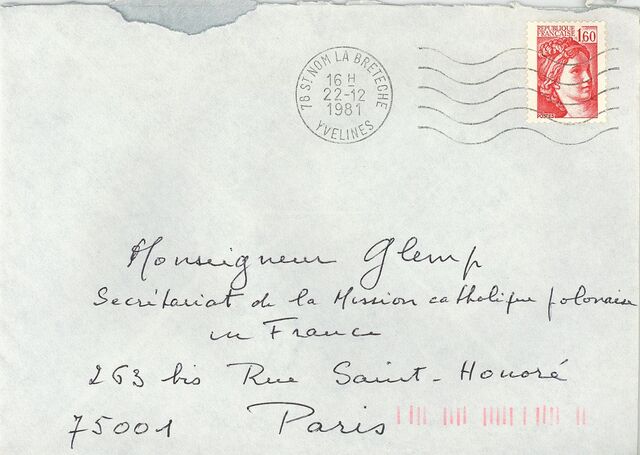 78 ST NOM LA BRETECHE
16 H
22-12
1981
YVELINES
REPUBLIQUE
FRANCAISE
1,60
POSTES
Monseigneur Glemp
Secrétariat de la Mission catholique polonaise
en France
263 bis Rue Saint-Honoré
75001 Paris